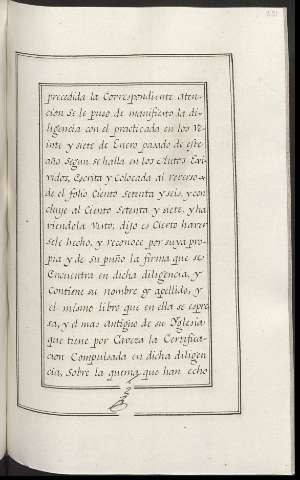 precedida la Correspondiente aten-
cion se le puso de manifiesto la di-
ligencia con el practicada en los Ve-
inte y siete de Enero pasado de este
año segun se halla en los Autos Exi-
vidos, Escrita y Colocada al reverso
de el folio Ciento Setenta y seis, y con
cluye al Ciento Setenta y siete, y ha
viendola Visto; dijo es Cierto haver
sele hecho, y reconoce por suya pro-
pia y de su puño la firma que se
Encuentra en dicha diligencia, y
Contiene su nombre y apellido, y
el mismo libro que en ella se espre
sa, y el mas antiguo de su Yglesia
que tiene por Caveza la Certifica-
cion Compulsada en dicha diligen-
cia, Sobre la quema que han echo